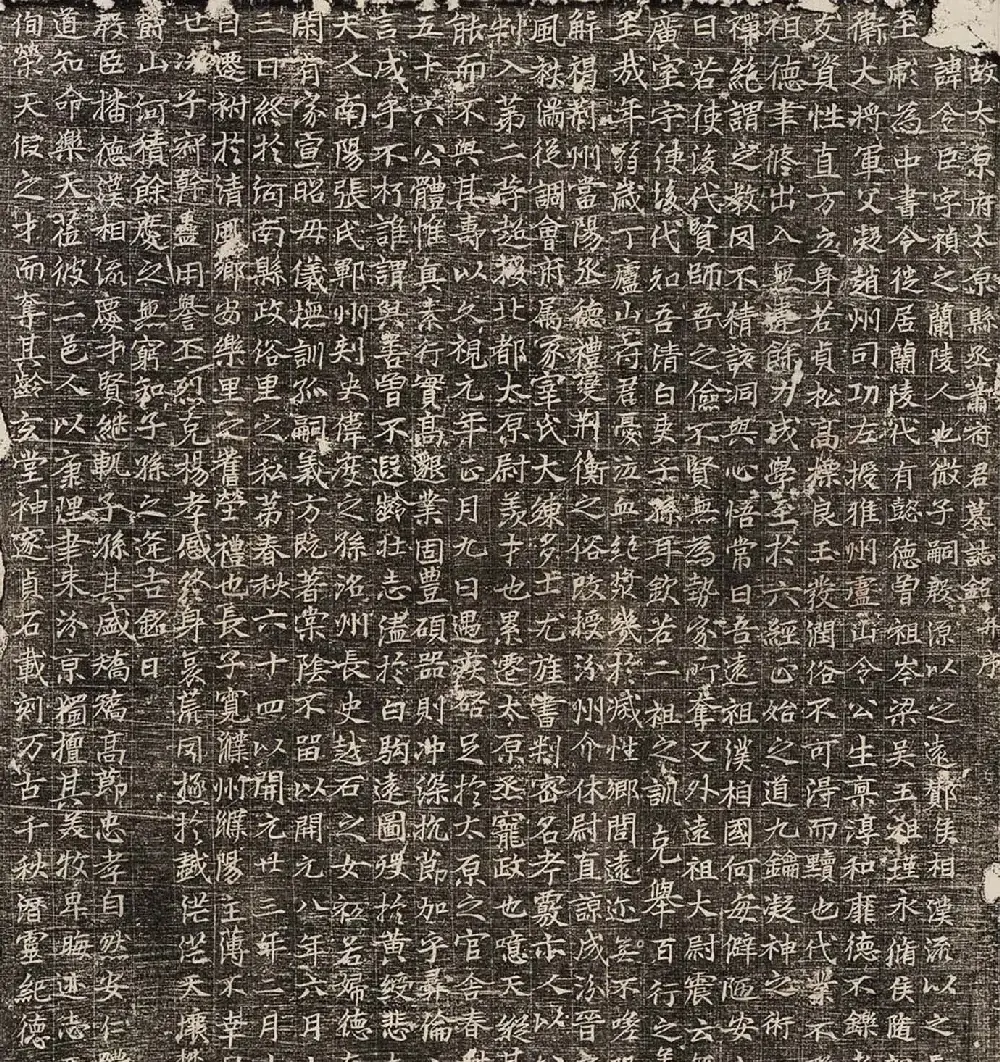 故太原府太原縣丞蕭府君墓誌銘并序
諱令臣字禎之蘭陵人也微子嗣殷源以之遠酇侯相漢流以之
至彪為中書令徙居蘭陵代有懿德曾祖岑梁吳王祖瑾永脩侯隨
衛大將軍父凝趙州司功左授雅州盧山令公生稟淳和雅德不鑠
友資性直方立身若貞松高標良玉發潤俗不可得而黷也代業不
祖德聿脩出入無違餘力或學至於六經正始之道九鑰凝神之術
禪絕謂之教罔不精該洞與心悟常曰吾遠祖漢相國何每僻陋安
曰若使後代賢師吾之儉不賢無為勢家所奪又外遠祖大尉震云
廣室宇使後代知吾清白吏子孫耳欽若二祖之訓克舉百行之
至哉年弱歲丁廬山府君憂泣血絕漿幾於滅性鄉閭遠迩無不嗟
解褐荊州當陽丞德禮變荊衡之俗改授汾州介休尉直諒成汾晉
風社滿從調會府屬冢宰氏大練多士尤旌書判密名考覈亦人以
判入第二等超授北都太原尉羨才也累遷太原丞寵政也噫天縱其
能而不與其壽以久視元年正月九日遇疾啓足於太原之官舍春
五十六公體惟真素行實高邈業固豐碩器則沖深抗節加乎彝倫
言成乎不朽誰謂與善曾不遐齡壯志溘於白駒遠圖殁於黃綬悲
夫人南陽張氏鄆州刺史偉度之孫洺州長史越石之女級名婦德
閑有家宣昭母儀撫訓孤嗣義方既著棠陰不留以開元八年六月
三日終於河南縣政俗里之私第春秋六十四以開元廿三年二月
日遷祔於清風鄉安樂里之舊塋禮也長子寬濮州濮陽主薄不幸
也次子幹蠱用譽丕烈克揚孝感終身哀荒罔極於戲茫茫天壤
爵山河積餘慶之無窮知子孫之逢吉銘曰
殷臣播德漢相流慶才賢継軌子孫其盛矯矯高節忠孝自然安仁
道知命樂天蒞彼二邑人以康理聿來汾京獨擅其美牧卑晦迹志
佝榮天假之才而奪其齡玄堂神邃貞石載刻万古千秋潛靈紀德